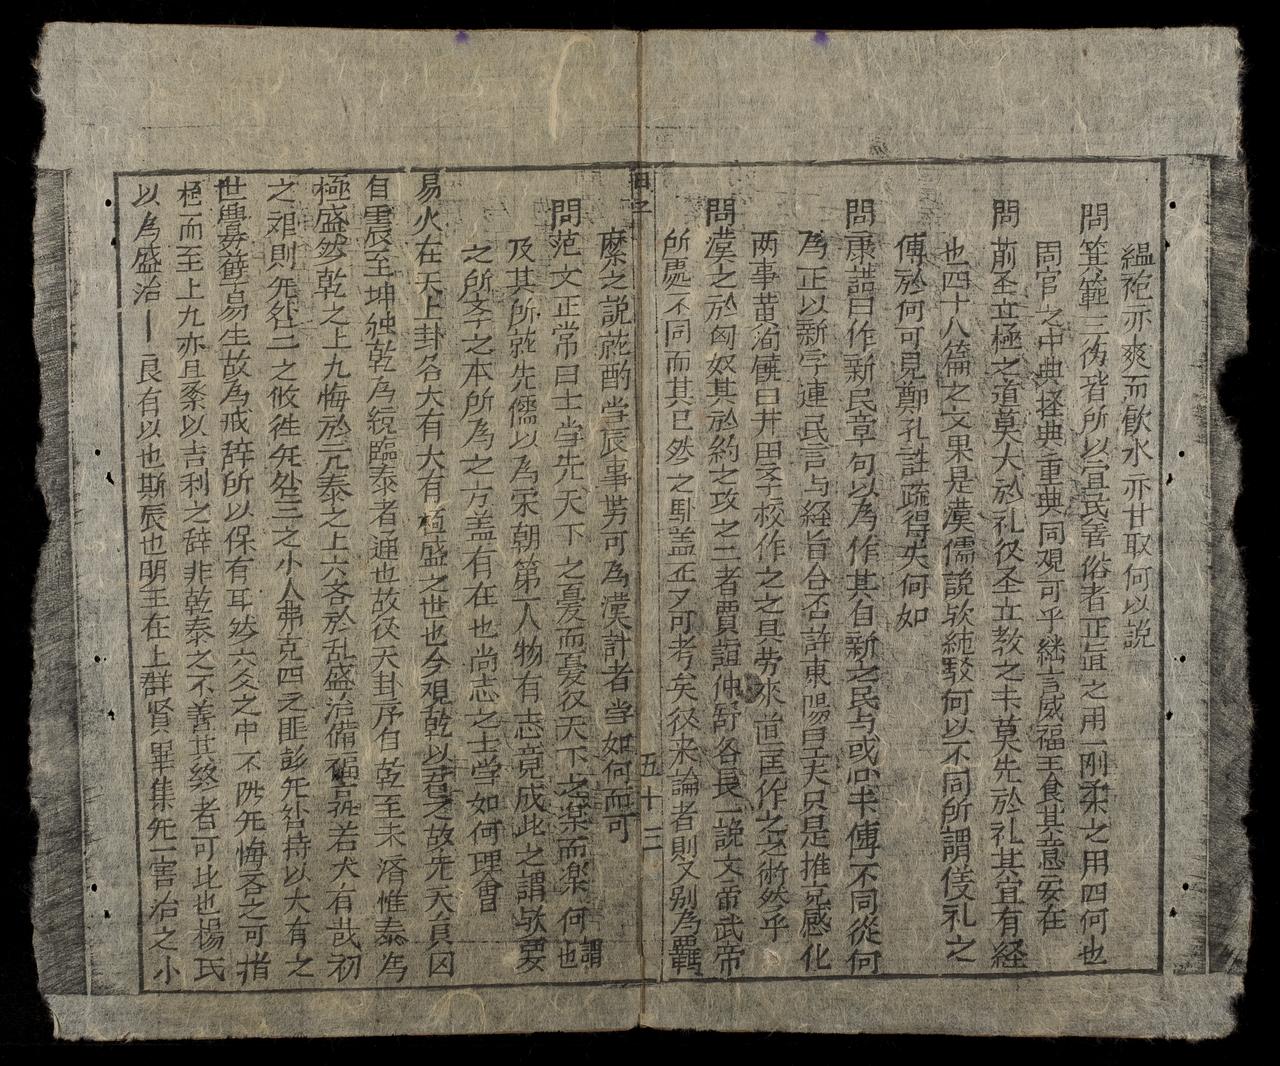 縕袍亦爽而飮水亦甘取何以說
問箕範三徳皆所以宜民善俗者正直之用一刚柔之用四何也
周官之中典軽典重典同观可乎継言威福玉食其意安在
問前圣立極之道莫大於礼后圣立教之卡莫先於礼其宜有経
也四十八篇之文果是漢儒說欤純駁何以不同所謂仪礼之
傳於何可見鄭孔註疏得失何如
問康誥曰作新民章句以為作其自新之民与或问半傳不同從何
為正以新字連民言与経旨合否許東陽曰上夫只是推亮感化
两事昔荀饒曰井田学校作之之具劳來匡直作之之術然乎
問漢之於匈奴其於約之攻之二者賈誼仲舒各長一說文帝武帝
所處不同而其已然之馭盖正又可考矣從来論者則又别為羈
縻之說就酌当辰事势可為漢計者当如何而可
五十三
問范文正常曰士当先天下之夏而憂后天下之楽而楽何謂也
及其所就先儒以為宋朝第一人物有志竟成此之謂欤要
之所学之本所為之方盖有在也尚志之士学如何理會
易火在天上卦名大有大有極盛之世也今观乾以君之故先天貞囚
自重辰至坤独乾為統臨泰者通也故后天卦序自乾至未済惟泰為
極盛然乾之上九悔於亢泰之上六吝於乱盛治備福吉若犬有哉初
之艰則无咎二之攸徃无咎三之小人弗克四之匪彭无咎持以大有之
世釁孽易生故為戒辞所以保有耳然六爻之中一不阱无悔吝之可指
極而至上九亦且系以吉利之辞非乾泰之不善其終者可比也楊氏
以為盛治一良有以也斯辰也明王在上群賢畢集无一害治之小